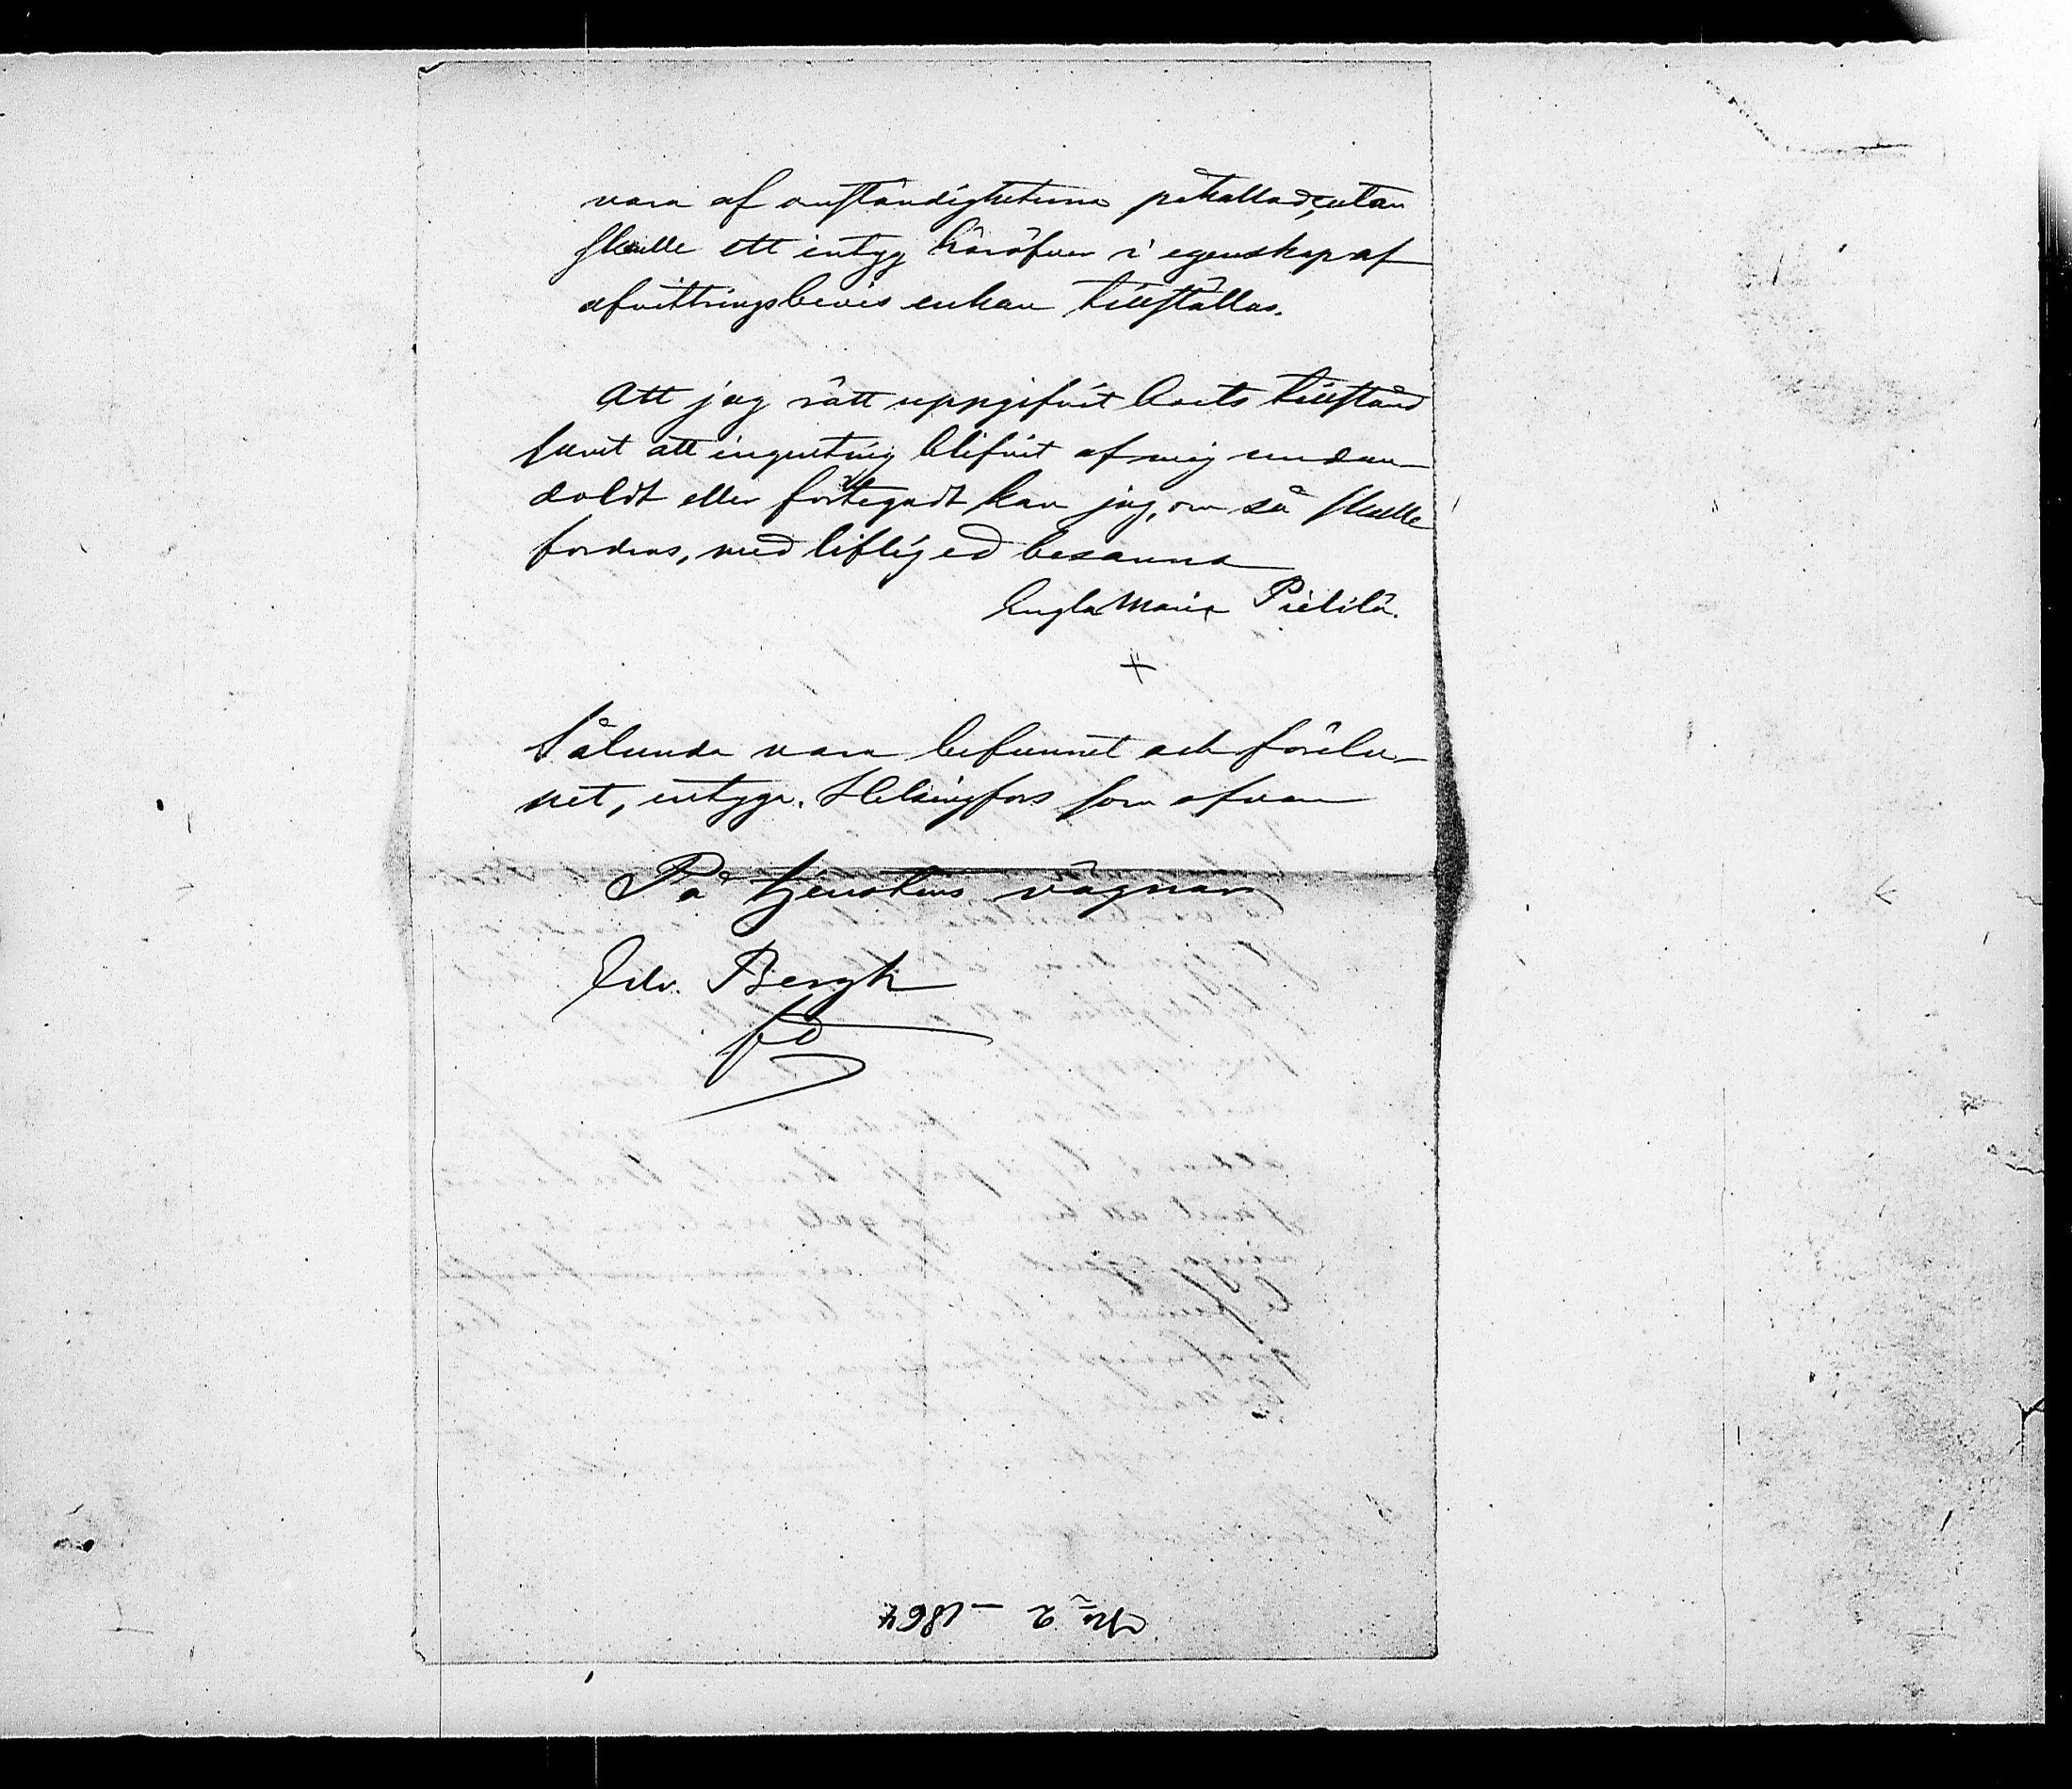 vara af omständigheterna påkallad, utan
skulle ett intyg häröfver i egenskap af
afvittringsbevis enkan tillställas.
Att jag rätt uppgifvit boets tillstånd
samt att ingenting blifvit af mig undan-
doldt eller förtegadt kan jag, om så skulle
fordras, med liflig ed besanna
Engla Maria Pietilä.
+
Sålunda vara befunnet och förelu-
pet, intyga. Helsingfors som ofvan
På tjenstens vägnar
Edv. Bergh
No 2 - 1864